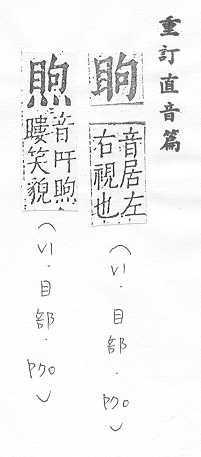 重訂直音篇
眗
音居左
右視也
(V1.目部.P70)
音吁
瞜笑貌
(V1.目部.P70)